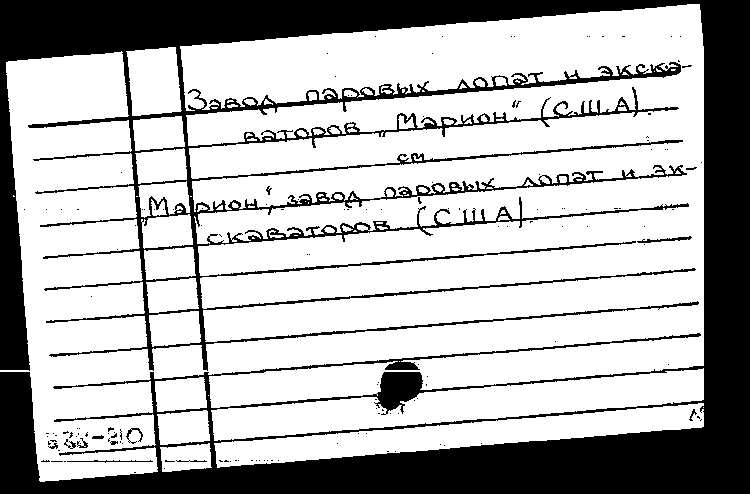 Завод паровых лопат и экска-
ваторов „Марион“ (С.Ш.А).
см.
„Марион“, завод паровых лопат и эк-
скаваторов (США)